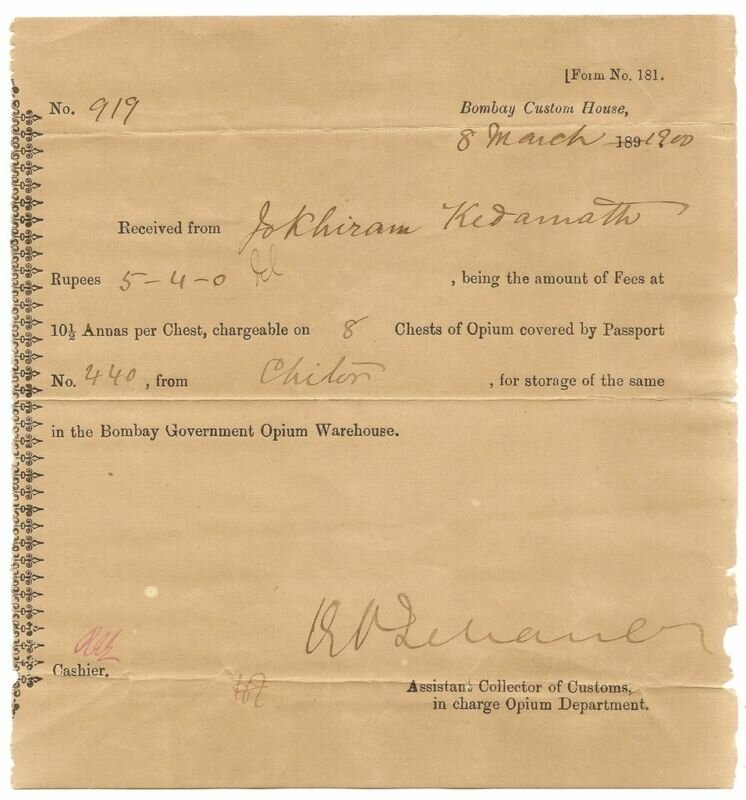 [Form No. 181.
No. 919 Bombay Custom House,
8 March 189 1900
Received from Jokhiram Kedarnath
Rupees 5-4-0 , being the amount of Fees at
10½ Annas per Chest, chargeable on 8 Chests of Opium covered by Passport
No. 440 , from Chitor , for storage of the same
in the Bombay Government Opium Warehouse.
Cashier.
Assistant Collector of Customs,
in charge Opium Department.